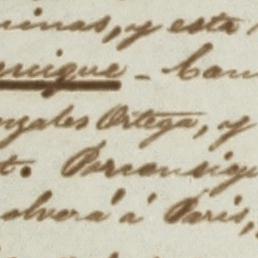 minas, y esta
enrique - Cam
onzales Ortega, y
t. Porconsigu
olverá á Paris,